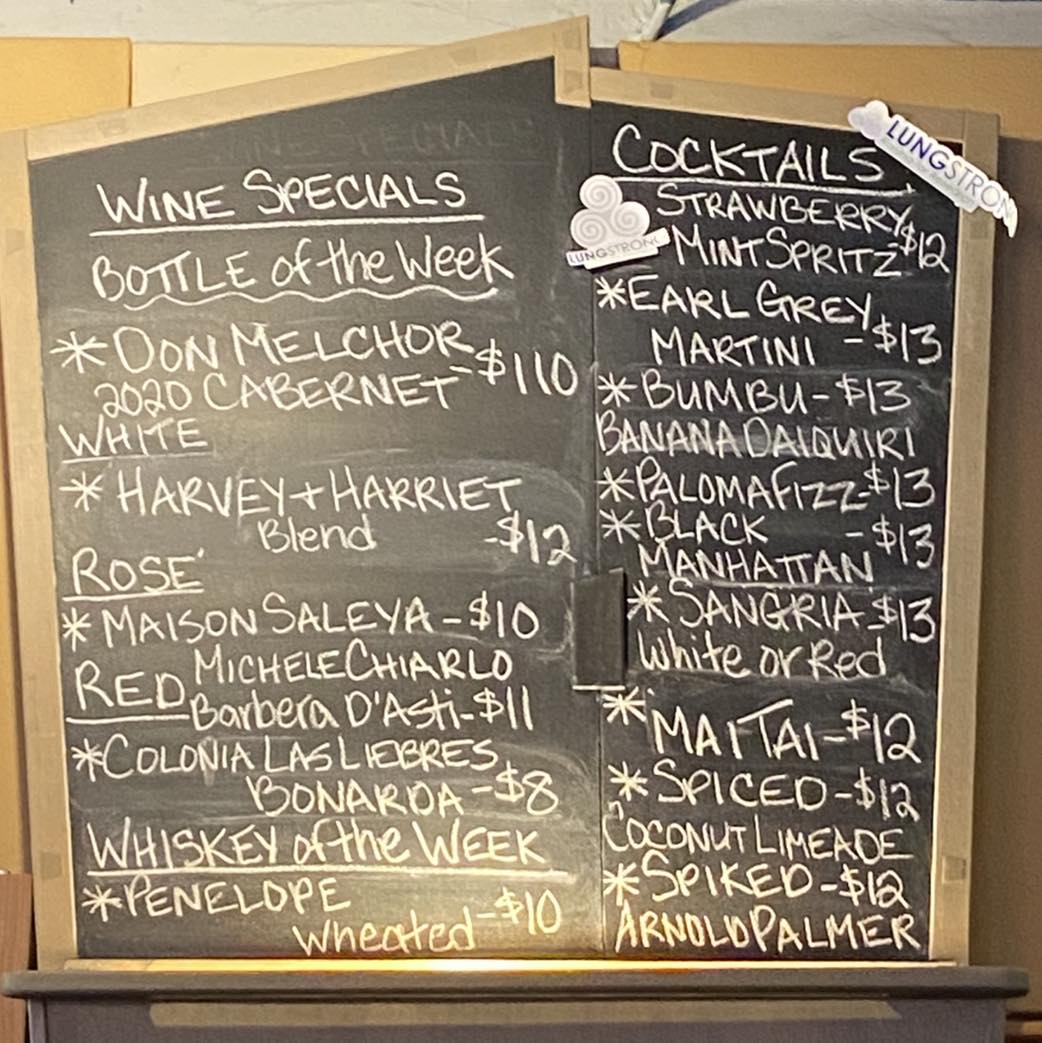 WINE SPECIALS
WINE SPECIALS
BOTTLE of the Week
*DON MELCHOR
2020 CABERNET -$110
WHITE
*HARVEY + HARRIET
Blend -$12
ROSÉ
*MAISON SALEYA -$10
RED MICHELE CHIARLO
Barbera D'Asti -$11
*COLONIA LAS LIEBRES
BONARDA -$8
WHISKEY of the WEEK
*PENELOPE
Wheated -$10
COCKTAILS
STRAWBERRY
*MINT SPRITZ -$12
*EARL GREY
MARTINI -$13
*BUMBU -$13
BANANA DAIQUIRI
*PALOMA FIZZ -$13
*BLACK -$13
MANHATTAN
*SANGRIA -$13
White or Red
*MAI TAI -$12
*SPICED -$12
COCONUT LIMEADE
*SPIKED -$12
ARNOLD PALMER
LUNGSTRONG
LUNGSTRON